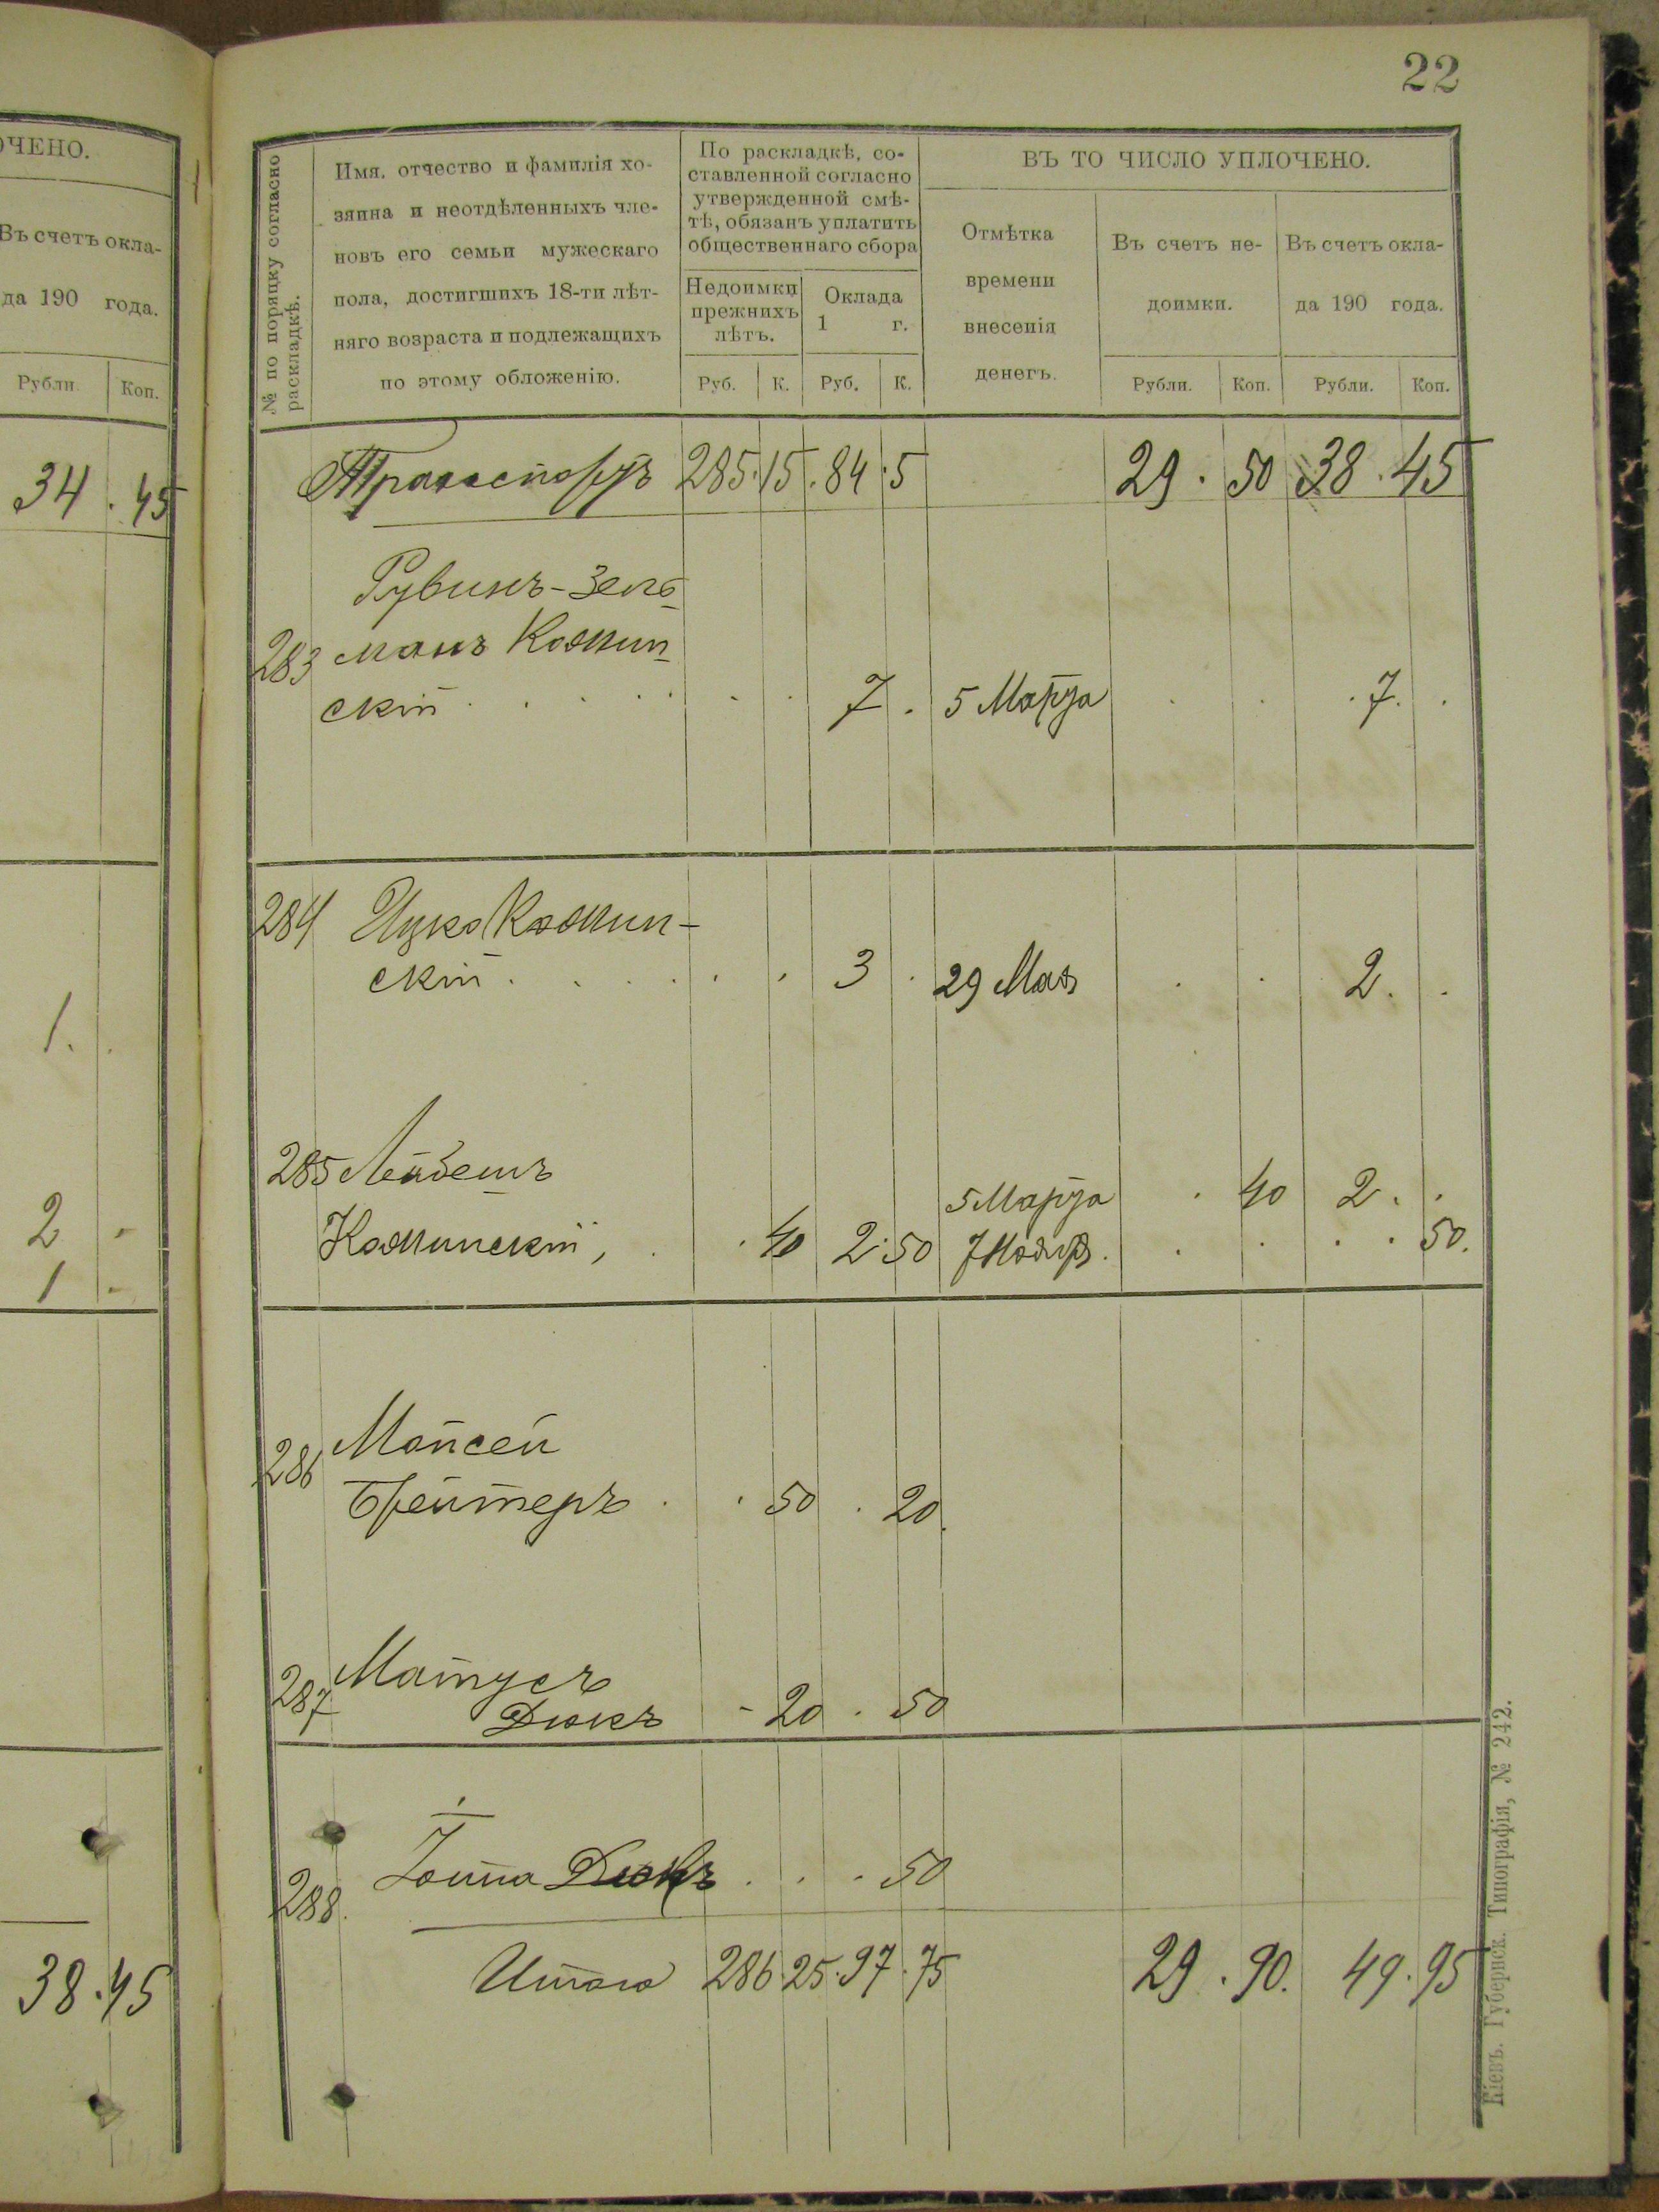 ОЧЕНО.
Въ счетъ окла-
да 190 года.
Рубли. Коп.
34 . 45
1.
2 -
1 -
38 . 45
22
№ по порядку согласно
раскладкѣ.
Имя, отчество и фамилія хо-
зяина и неотдѣленныхъ чле-
новъ его семьи мужескаго
пола, достигшихъ 18-ти лѣт-
няго возраста и подлежащихъ
по этому обложенію.
По раскладкѣ, со-
ставленной согласно
утвержденной смѣ-
тѣ, обязанъ уплатить
общественнаго сбора
Недоимки
прежнихъ
лѣтъ.
Руб. К.
Оклада
1 г.
Руб. К.
ВЪ ТО ЧИСЛО УПЛОЧЕНО.
Отмѣтка
времени
внесенія
денегъ.
Въ счетъ не-
доимки.
Рубли. Коп.
Въ счетъ окла-
да 190 года.
Рубли. Коп.
Транспортъ 285 . 15 . 84 . 5 29 . 50 38 . 45
Рувинъ-Зель
283 манъ Камин
скій . . . . . . 7 . 5 Марта . . . 7 . .
284 Ицко Камин-
скій . . . . . . 3 . 29 Мая . . 2 . .
285 Лейбешъ
5 Марта . 40 2 . .
Каминскій, . . 40 2 . 50 7 Ноябр. . . . . 50.
286 Мойсей
Брейтеръ . . 50 . 20.
287 Матусъ
Дюкъ - 20 . 50
288. Іойна Дюкъ . . . 50
Итого 286 . 25 . 97 . 75 29 . 90. 49 . 95
Кіевъ. Губернск. Типографія, № 242.